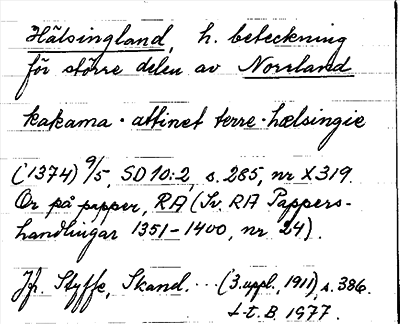 Hälsingland, h. beteckning
för större delen av Norrland
kakama · attinet terre · hælsingie
(1374) 9/5, SD 10:2, s. 285, nr X319.
Or på papper, RA (Sv. RA Pappers-
handlingar 1351-1400, nr 24).
Jfr. Styffe, Skand. ... (3. uppl., 1911), s. 386.
t.B. 1977.